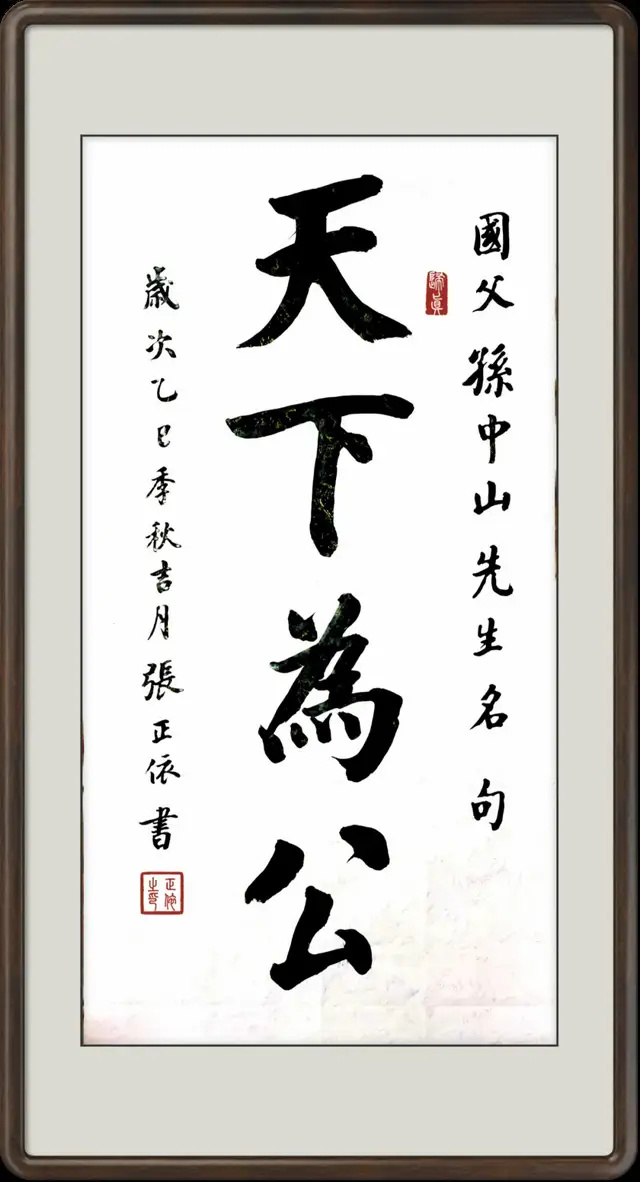 國父孫中山先生名句
歸真
天下為公
歲次乙巳季秋吉月張正依書